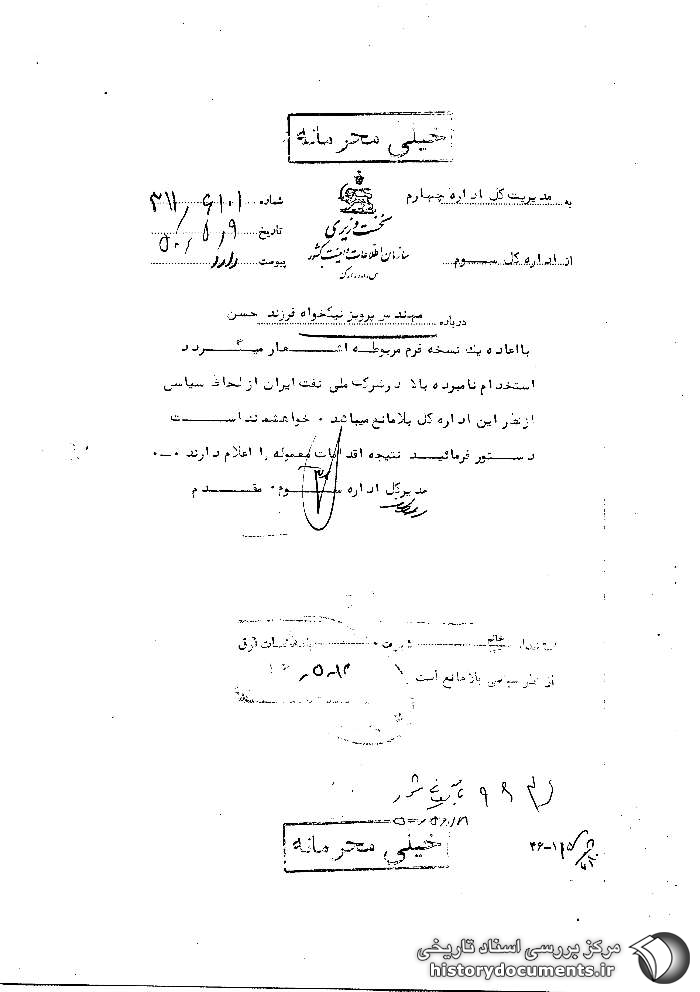 خیلی محرمانه
به مدیریت کل اداره چهارم
از اداره کل سوم
نخست وزیری
سازمان اطلاعات و امنیت کشور
س.ا.و.ا.ک
شماره ۳۱۱/۶۱۰۱
تاریخ ۵۰/۵/۹
پیوست دارد
درباره مهندس پرویز نیکخواه فرزند حسن
با اعاده یک نسخه فرم مربوطه اشعار میگردد
استخدام نامبرده بالا در شرکت ملی نفت ایران از لحاظ سیاسی
از نظر این اداره کل بلامانع میباشد . خواهشمند است
دستور فرمائید نتیجه اقدامات معموله را اعلام دارند .
مدیرکل اداره سوم . مقدم
خانم
از نظر سیاسی بلامانع است
بایگانی شود
خیلی محرمانه
مرکز بررسی اسناد تاریخی
historydocuments.ir